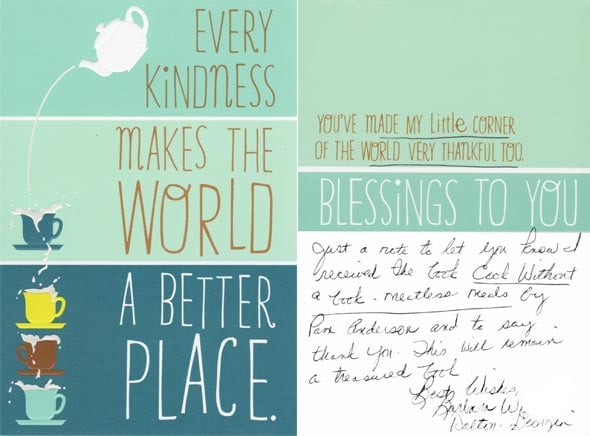 EVERY
KiNDNESS
MAKES THE
WORLD
A BETTER
PLACE.
YOU'VE MADE MY little CORNER
OF THE WORLD VERY THANKFUL TOO.
BLESSiNGS TO YOU
Just a note to let you know I
received the book Cook Without
a book - meatless meals by
Pam Anderson and to say
thank you. This will remain
a treasured book
Best Wishes,
Barbara W.
Dalton, Georgia